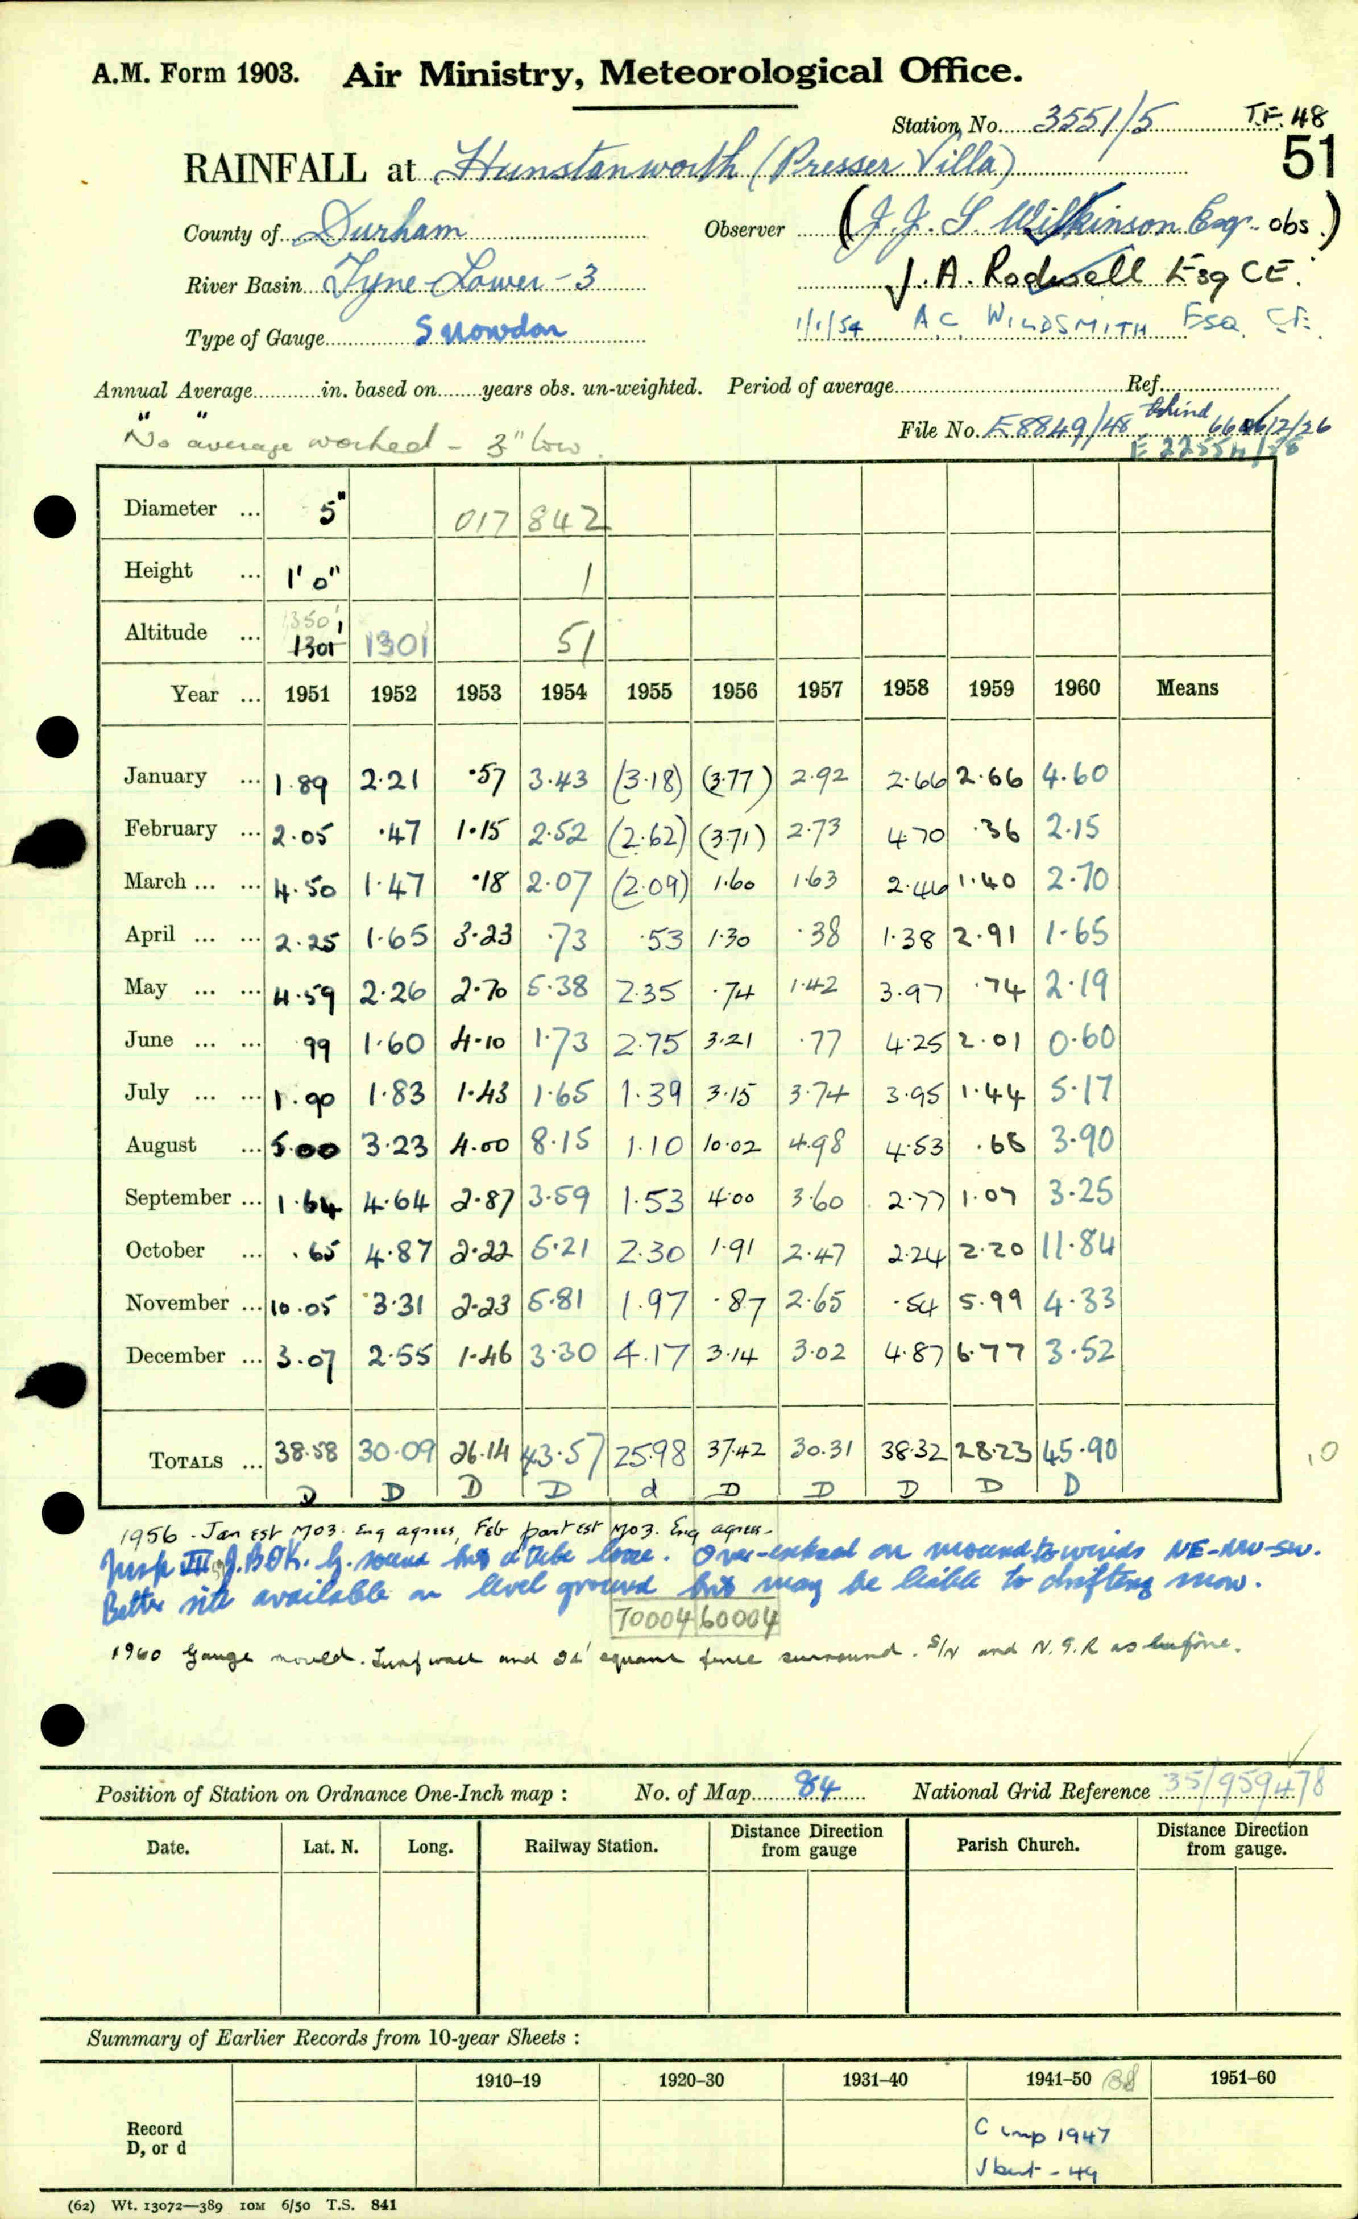 A.M. Form 1903. Air Ministry, Meteorological Office.
Station No. 3551/5 T.F. 48
RAINFALL at Hunstanworth (Presser Villa) 51
County of Durham Observer (J. J. S. Wilkinson Esqr. obs.)
River Basin Tyne Lower - 3 J. A. Rodwell Esq CE.
Type of Gauge Snowdon 1/1/54 A C WILDSMITH Esq. C.E.
Annual Average in. based on years obs. un-weighted. Period of average Ref.
"No average worked - 3" low. File No. E8849/48 behind
Diameter ... 5" 017 842
Height ... 1' 0" 1
Altitude ... 1350' 1301 1301 51
Year ... 1951 1952 1953 1954 1955 1956 1957 1958 1959 1960 Means
January ... 1.89 2.21 .57 3.43 (3.18) (3.77) 2.92 2.66 2.66 4.60
February ... 2.05 .47 1.15 2.52 (2.62) (3.71) 2.73 4.70 .36 2.15
March ... ... 4.50 1.47 .18 2.07 (2.09) 1.60 1.63 2.46 1.40 2.70
April ... ... 2.25 1.65 3.23 .73 .53 1.30 .38 1.38 2.91 1.65
May ... ... 4.59 2.26 2.70 5.38 2.35 .74 1.42 3.97 .74 2.19
June ... ... 99 1.60 4.10 1.73 2.75 3.21 .77 4.25 2.01 0.60
July ... ... 1.90 1.83 1.43 1.65 1.39 3.15 3.74 3.95 1.44 5.17
August ... 5.00 3.23 4.00 8.15 1.10 10.02 4.98 4.53 .68 3.90
September ... 1.64 4.64 2.87 3.59 1.53 4.00 3.60 2.77 1.07 3.25
October ... .65 4.87 2.22 5.21 2.30 1.91 2.47 2.24 2.20 11.84
November ... 10.05 3.31 2.23 5.81 1.97 .87 2.65 .54 5.99 4.33
December ... 3.07 2.55 1.46 3.30 4.17 3.14 3.02 4.87 6.77 3.52
TOTALS ... 38.58 30.09 26.14 43.57 25.98 37.42 30.31 38.32 28.23 45.90
D D D D d D D D D D
1956 - Jan est MO3. Eng agrees, Feb part est MO3. Eng agrees.
Insp III J.BOK. G. sound but a tube loose. Over-exposed on mound to winds NE-NW-SW.
Better site available on level ground but may be liable to drifting snow.
70004 60004
1960 Gauge moved. Turf wall and square fence surround. S/N and N.G.R as before.
Position of Station on Ordnance One-Inch map : No. of Map 84 National Grid Reference 35/959478
Date. Lat. N. Long. Railway Station. Distance from Direction gauge Parish Church. Distance from Direction gauge.
Summary of Earlier Records from 10-year Sheets :
1910–19 1920–30 1931–40 1941–50 1951–60
Record
D, or d
C imp 1947
(62) Wt. 13072—389 10M 6/50 T.S. 841